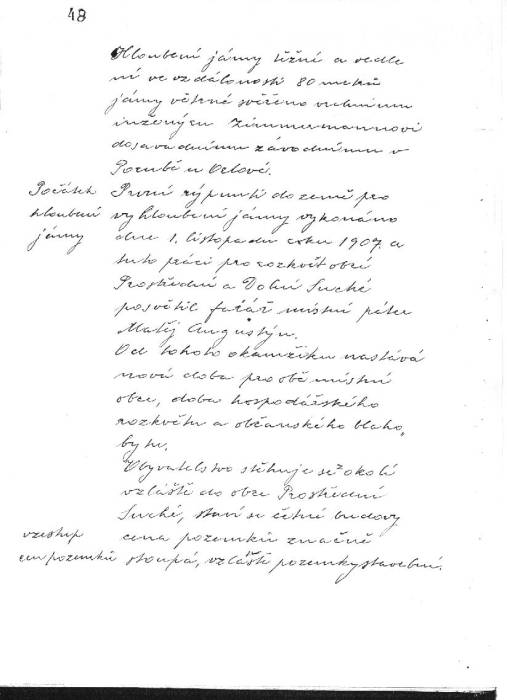 48
Hloubení jámy těžní a vedle
ní ve vzdálenosti 80 metrů
jámy větrné svěřeno vrchnímu
inženýru Zimmermannovi
dosavadnímu závodnímu v
Porubě u Orlové.
Počátek
hloubení
jámy
První rýpnutí do země pro
vyhloubení jámy vykonáno
dne 1. listopadu roku 1907. a
tuto práci pro rozkvět obcí
Prostřední a Dolní Suché
posvětil farář místní páter
Matěj Augustýn.
Od tohoto okamžiku nastává
nová doba pro obě místní
obce, doba hospodářského
rozkvětu a občanského blaho„
bytu.
Obyvatelstvo stěhuje se z okolí
vzláště do obce Prostřední
Suché, staví se četné budovy
cena pozemků značně
stoupá, vzláště pozemky stavební.
vzestup
cen pozemků